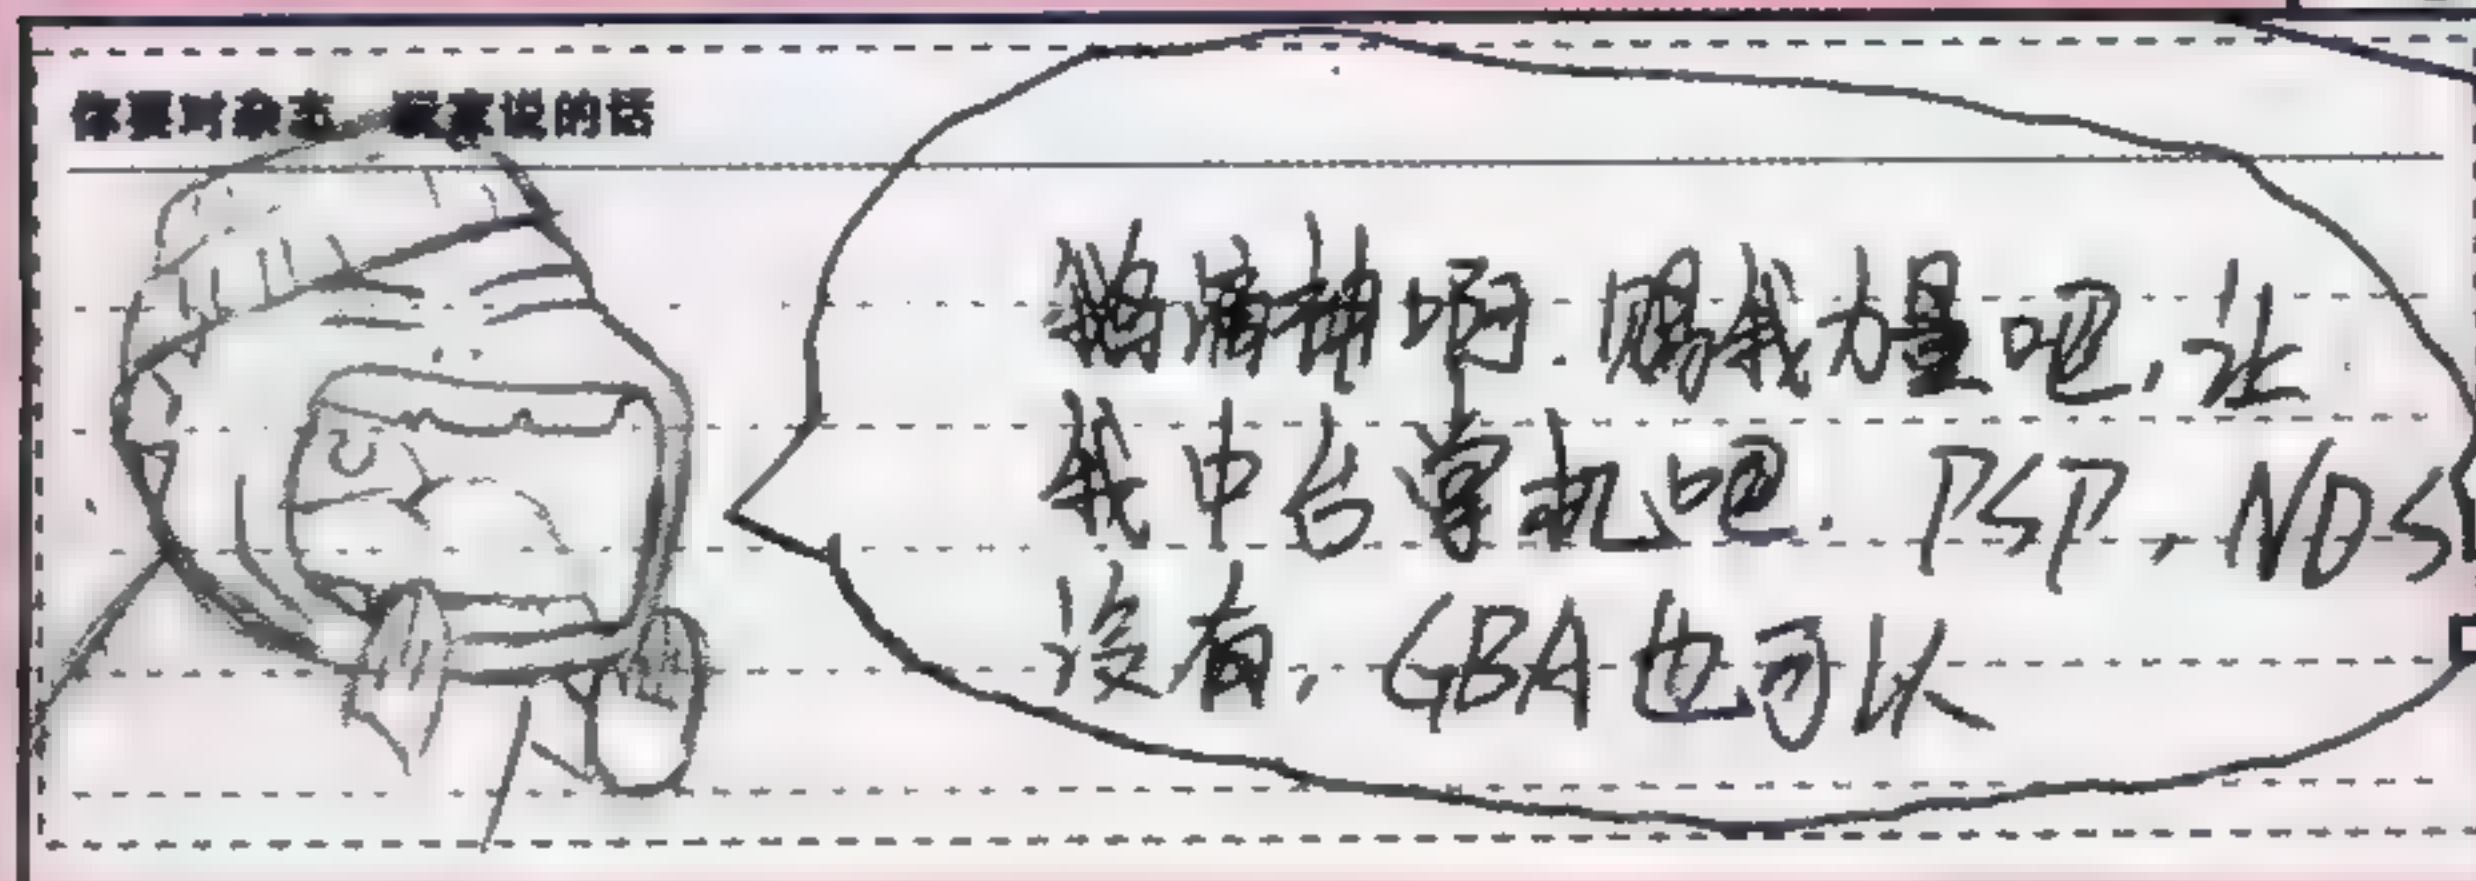 你要对杂志 玩家说的话
神啊.赐我力量吧,让
我中台掌机吧. PSP,NDS
没有,GBA也可以